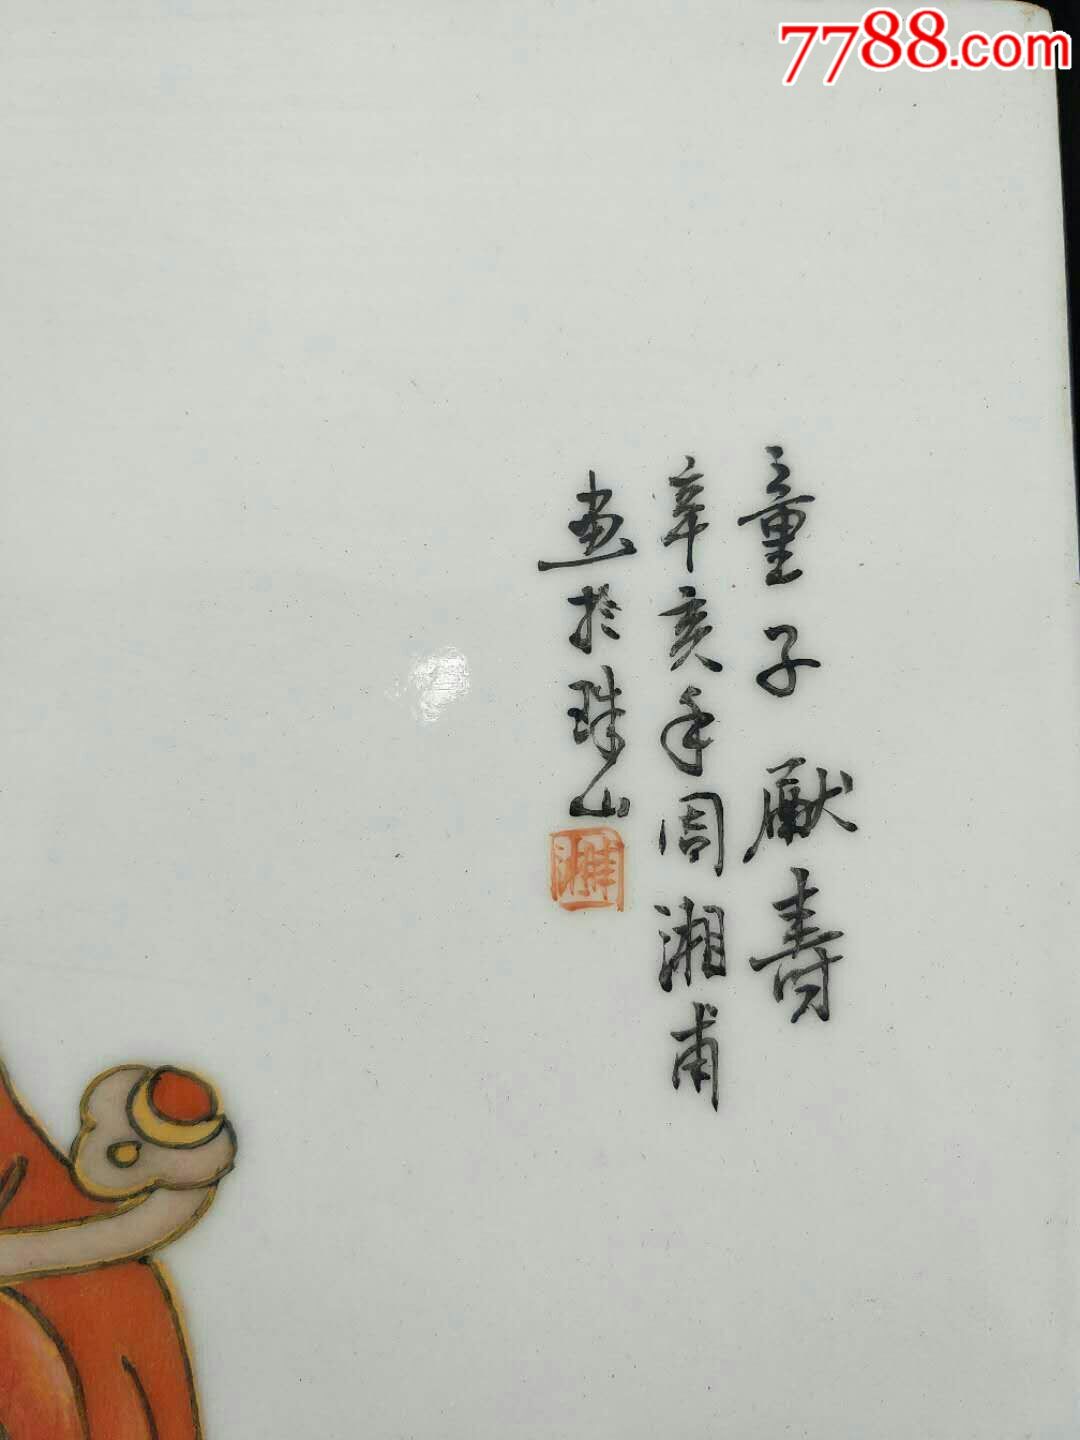 7788.com
童子献壽
辛亥年周湘甫
畫於珠山
湘甫